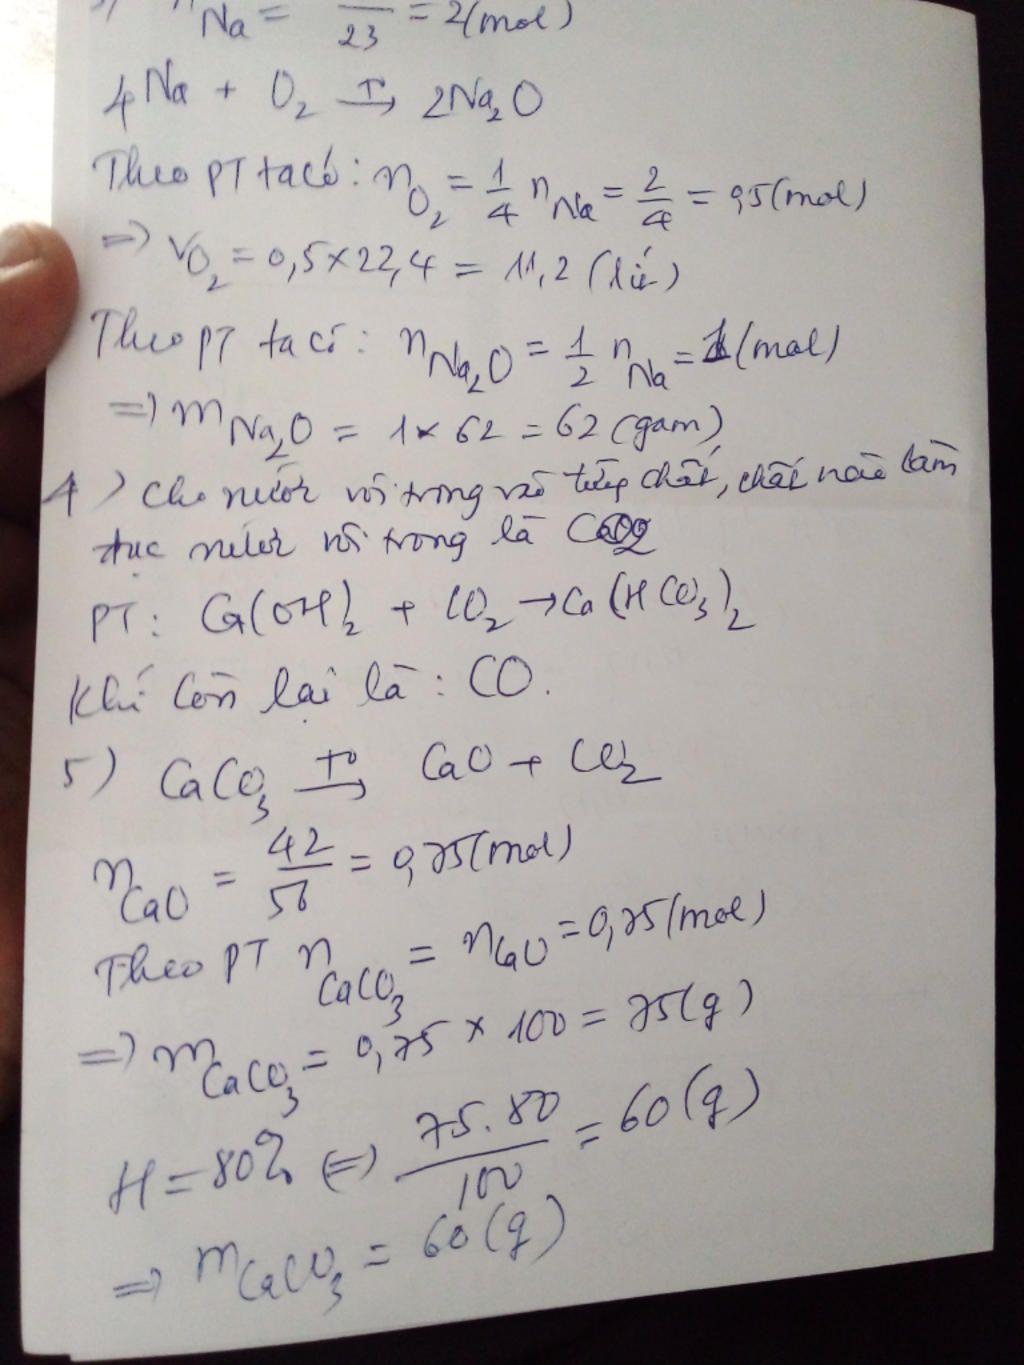 n Na = /23 = 2(mol)
4Na + O2 →t° 2Na2O
Theo PT ta có: nO2 = 1/4 nNa = 2/4 = 0,5(mol)
=> VO2 = 0,5×22,4 = 11,2 (lít)
Theo PT ta có: nNa2O = 1/2 nNa = 1(mol)
=> mNa2O = 1×62 = 62 (gam)
4) Cho nước vôi trong vào từng chất, chất nào làm
đục nước vôi trong là CO2
PT: Ca(OH)2 + CO2 → Ca(HCO3)2
Khí còn lại là: CO.
5) CaCO3 →t° CaO + CO2
nCaO = 42/56 = 0,75(mol)
Theo PT nCaCO3 = nCaO = 0,75(mol)
=> mCaCO3 = 0,75 × 100 = 75(g)
H = 80% (=) 75.80/100 = 60(g)
=> mCaCO3 = 60(g)